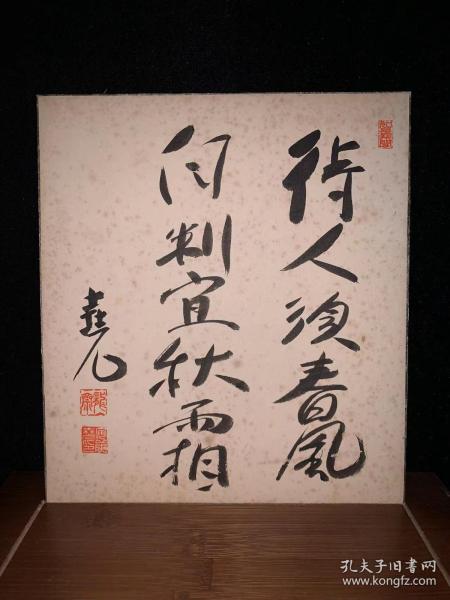 待人須春風
制宜秋霜
孔夫子旧书网
www.kongfz.com